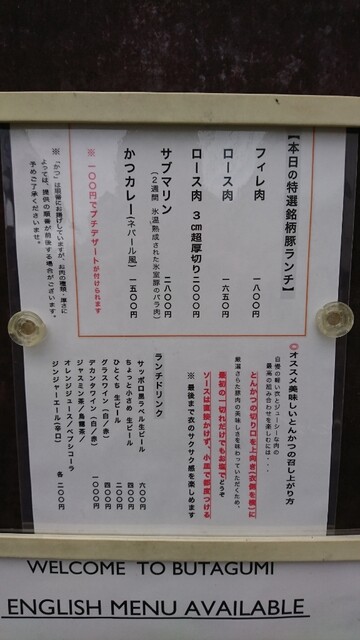 【本日の特選銘柄豚ランチ】
フィレ肉 一八〇〇円
ロース肉 一六五〇円
ロース肉 3cm超厚切り 二〇〇〇円
サブマリン 二八〇〇円
(2週間 氷温熟成された氷室豚のバラ肉)
かつカレー(ネパール風) 一五〇〇円
※ 一〇〇円でプチデザートが付けられます
※ 「かつ」は順番にお揚げしていますが、お肉の種類・厚さに
よっては、提供の順番が前後する場合がございます。
予めご了承くださいませ。
◎オススメ美味しいとんかつの召し上がり方
自慢の軽い衣とジューシーな肉の
最高の組み合わせを楽しむには・・・
とんかつの切り口を上向き(衣側を横)に
厳選さらた豚肉の美味しさを味わっていただくため、
最初の一切れだけでもお塩でどうぞ
ソースは直接かけず、小皿で都度つける
※ 最後まで衣のサクサク感を楽しめます
ランチドリンク
サッポロ黒ラベル生ビール 六〇〇円
ちょっと小さめ 生ビール 四〇〇円
ひとくち 生ビール 二〇〇円
グラスワイン(白/赤) 四〇〇円
デカンタワイン(白/赤) 一〇〇〇円
ジャスミン茶/烏龍茶/
オレンジジュース/ペプシコーラ
ジンジャーエール(辛口) 各 二〇〇円
WELCOME TO BUTAGUMI
ENGLISH MENU AVAILABLE